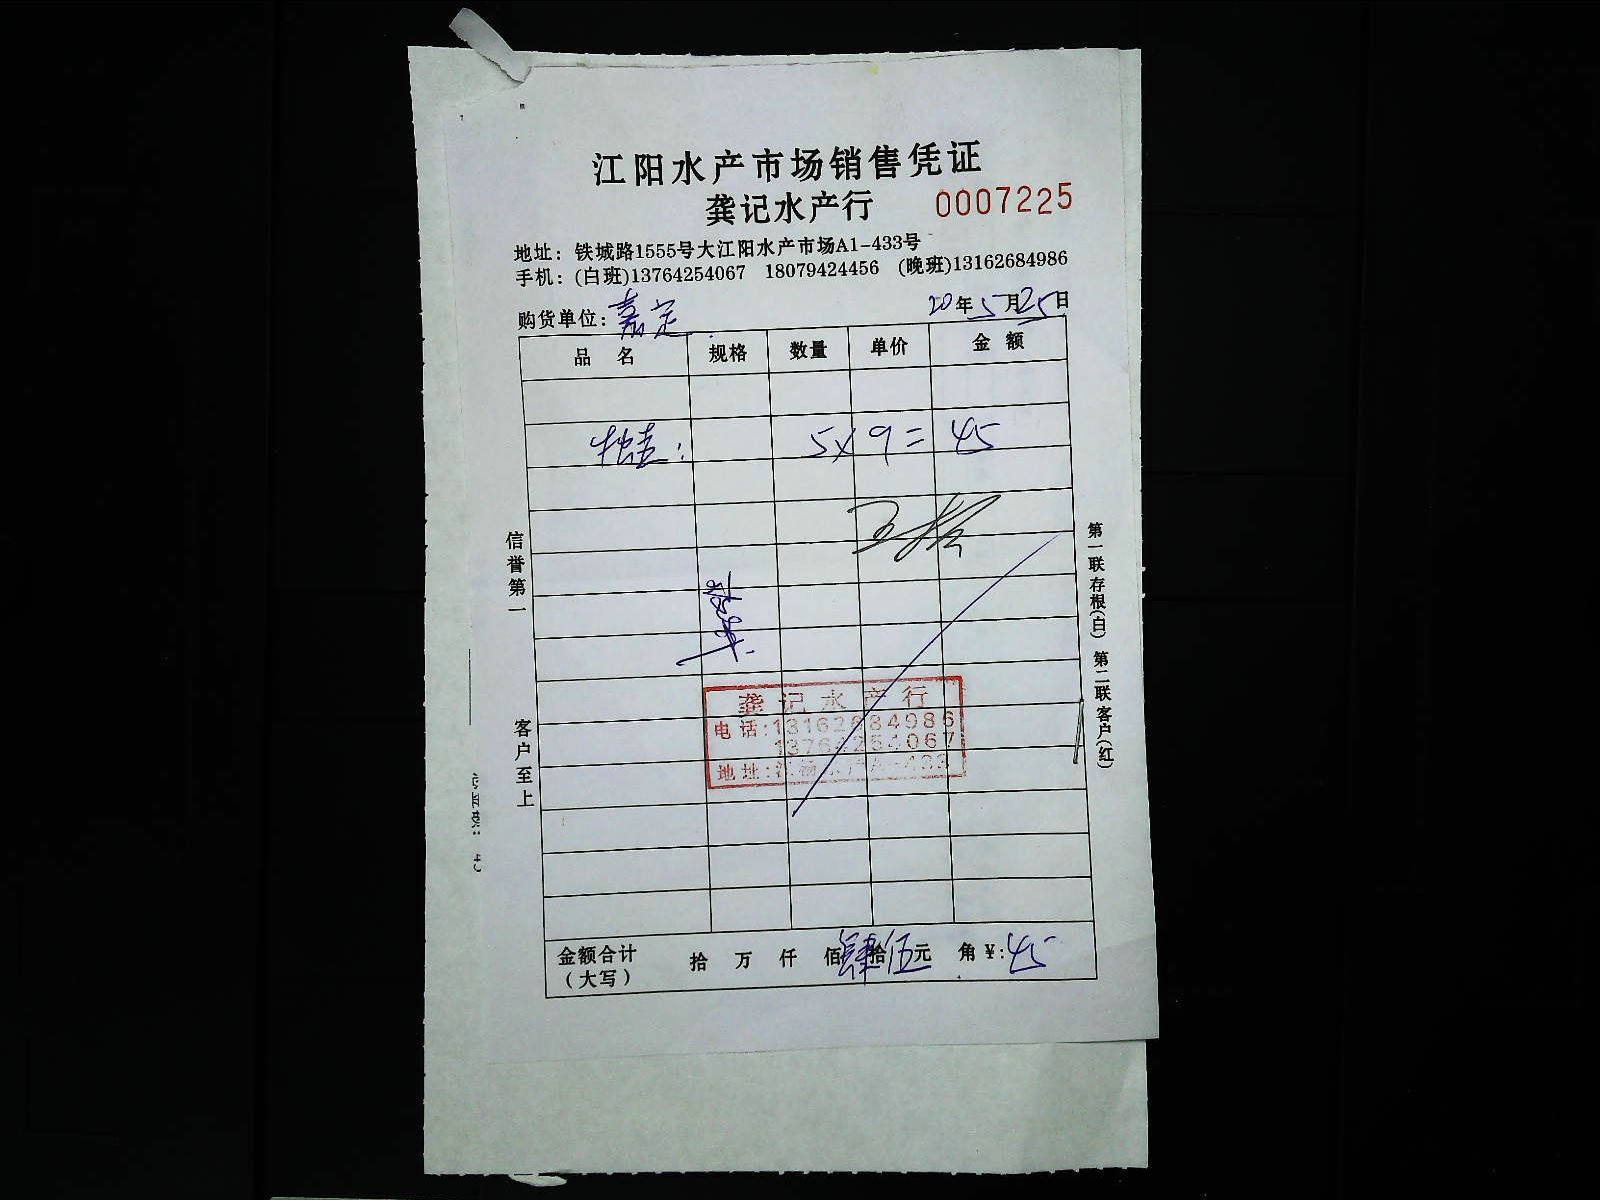 江阳水产市场销售凭证
龚记水产行 0007225
地址：铁城路1555号大江阳水产市场A1-433号
手机：(白班)13764254067 18079424456 (晚班)13162684986
购货单位：嘉定 20年5月25日
品名 规格 数量 单价 金额
5×9=45
信誉第一
客户至上
第一联存根(白) 第二联客户(红)
龚记水产行
电话:13162684986
13764254067
地址:江杨水产A-433
金额合计 拾 万 仟 佰肆拾伍元 角 ¥:45
(大写)